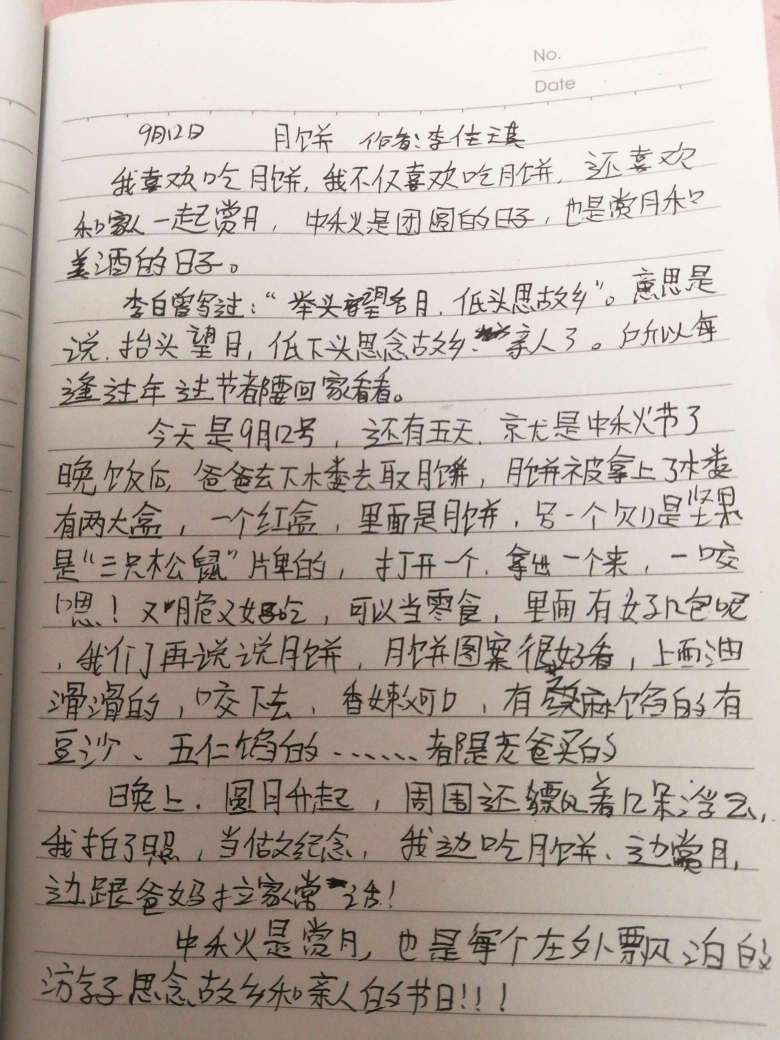 No.
Date
9月12日 月饼 作者:李佳琪
我喜欢吃月饼,我不仅喜欢吃月饼,还喜欢
和家人一起赏月,中秋是团圆的日子,也是赏月和
美酒的日子。
李白曾写过:“举头望明月,低头思故乡”。意思是
说,抬头望月,低下头思念故乡、亲人了。所以每
逢过年过节都要回家看看。
今天是9月12号,还有五天,京尤是中秋节了
晚饭后,爸爸去下木娄去取月饼,月饼被拿上了木娄
有两大盒,一个红盒,里面是月饼,另一个则是坚果
是“三只松鼠”片卑的,打开一个,拿出一个来,一咬
嗯!又脆又好吃,可以当零食,里面有好几包呢
,我们再说说月饼,月饼图案很好看,上面油
滑滑的,咬下去,香嫩可口,有芝麻馅的有
豆沙、五仁馅的……都是老爸买的
晚上,圆月升起,周围还飘着几朵浮云,
我拍了照,当做纪念,我边吃月饼、边赏月,
边跟爸妈拉家常话!
中秋是赏月,也是每个在外飘泊的
游子思念故乡和亲人的节日!!!